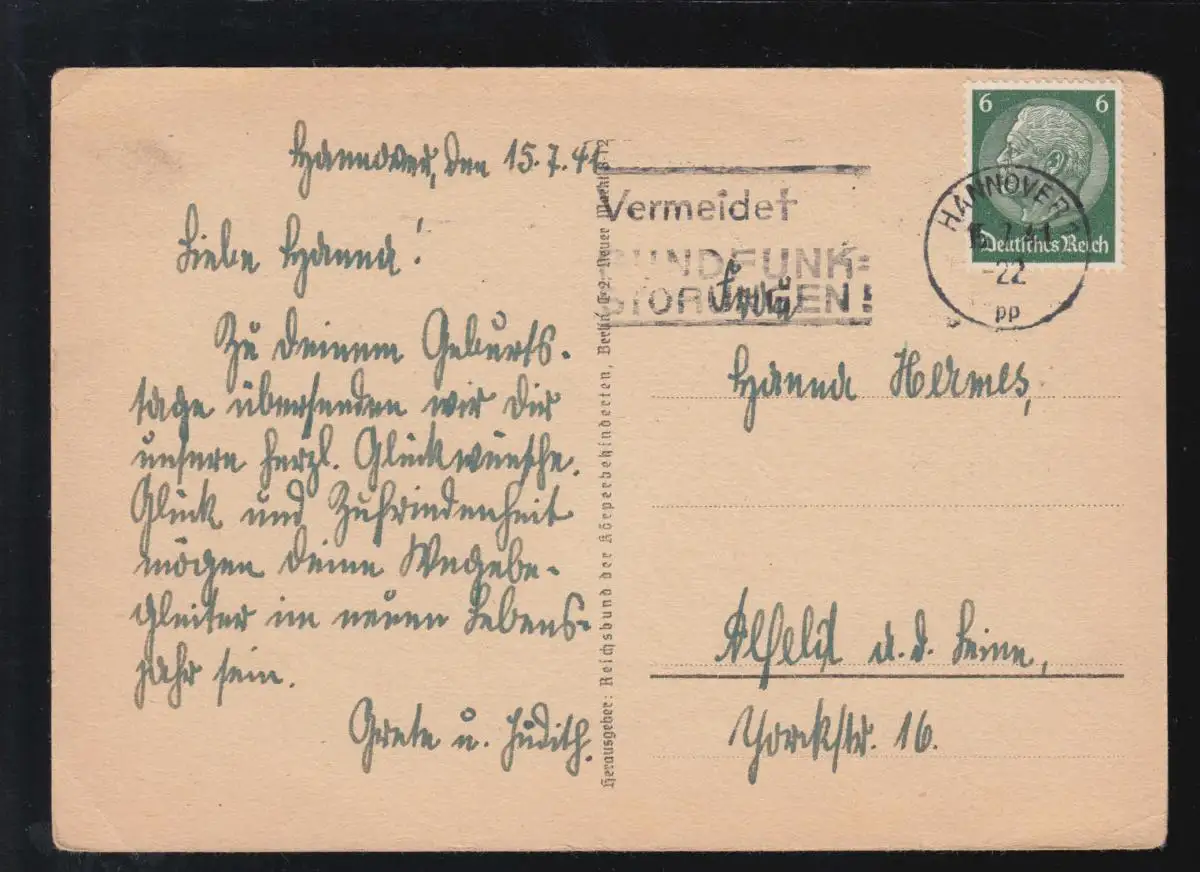 Hannover, den 15.7.41
Liebe Hanna!
Zu deinem Geburts-
tage übersenden wir dir
unsere herzl. Glückwünsche.
Glück und Zufriedenheit
mögen deine Wegebe-
gleiter im neuen Lebens-
jahr sein.
Grete u. Judith.
Herausgeber: Reichsbund der Körperbehinderten, Berlin C 2, Neuer Markt 8-12
Vermeidet
RUNDFUNK=
STÖRUNGEN!
6 6
Deutsches Reich
HANNOVER
15.7.41
-22
pp
Frau
Hanna Hermes,
Alfeld a.d. Leine,
Yorckstr. 16.